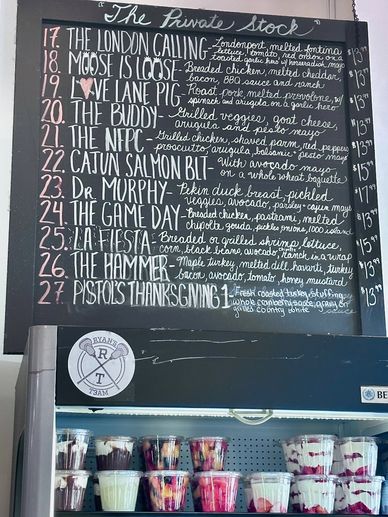 "The Private Stock"
17. THE LONDON CALLING - Londonport, melted fontina
lettuce, tomato, red onion on a
toasted garlic hero w/ horseradish mayo
18. MÖOSE IS LÖOSE - Breaded chicken, melted cheddar,
bacon, BBQ sauce and ranch
19. LOVE LANE PIG - Roast pork, melted provolone, w/
spinach and arugula on a garlic hero
20. THE BUDDY - Grilled veggies, goat cheese,
arugula and pesto mayo
21. THE NFPC - Grilled chicken, shaved parm, red peppers
prosciutto, arugula, balsamic pesto mayo
22. CAJUN SALMON BLT - With avocado mayo
on a whole wheat baguette
23. DR MURPHY - Pekin duck breast, pickled
veggies, avocado, parsley-caper mayo
24. THE GAME DAY - Breaded chicken, pastrami, melted
chipotle gouda, pickles, onions, 1000 island
25. LA FIESTA - Breaded or grilled shrimp, lettuce,
corn, black beans, avocado, ranch, in a wrap
26. THE HAMMER - Maple turkey, melted dill havarti, turkey
bacon, avocado, tomato, honey mustard
27 PISTOL'S THANKSGIVING 1 - Fresh roasted turkey, stuffing,
whole cranberry sauce, gravy on
grilled country white
RYAN'S
R
T
TEAM
BE